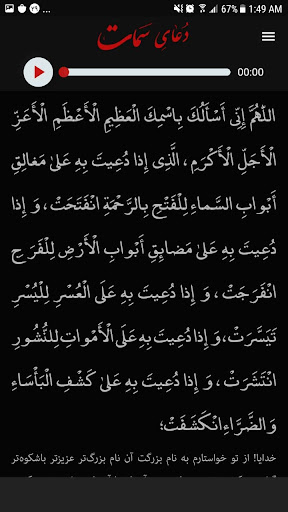 67% 1:49 AM
دُعٰایِ سَمٰات
00:00
اللّٰهُمَّ إِنّى أَسْأَلُكَ بِاسْمِكَ الْعَظِيمِ الْأَعْظَمِ الْأَعَزِّ
الْأَجَلِّ الْأَكْرَمِ، الَّذِى إِذا دُعِيتَ بِهِ عَلىٰ مَغالِقِ
أَبْوابِ السَّماءِ لِلْفَتْحِ بِالرَّحْمَةِ انْفَتَحَتْ، وَ إِذا
دُعِيتَ بِهِ عَلىٰ مَضايِقِ أَبْوابِ الْأَرْضِ لِلْفَرَجِ
انْفَرَجَتْ، وَ إِذا دُعِيتَ بِهِ عَلَى الْعُسْرِ لِلْيُسْرِ
تَيَسَّرَتْ، وَ إِذا دُعِيتَ بِهِ عَلَى الْأَمْواتِ لِلنُّشُورِ
انْتَشَرَتْ، وَ إِذا دُعِيتَ بِهِ عَلىٰ كَشْفِ الْبَأْساءِ
وَالضَّرَّاءِ انْكَشَفَتْ؛
خدایا! از تو خواستارم به نام بزرگت آن نام بزرگ‌تر عزیزتر باشکوه‌تر